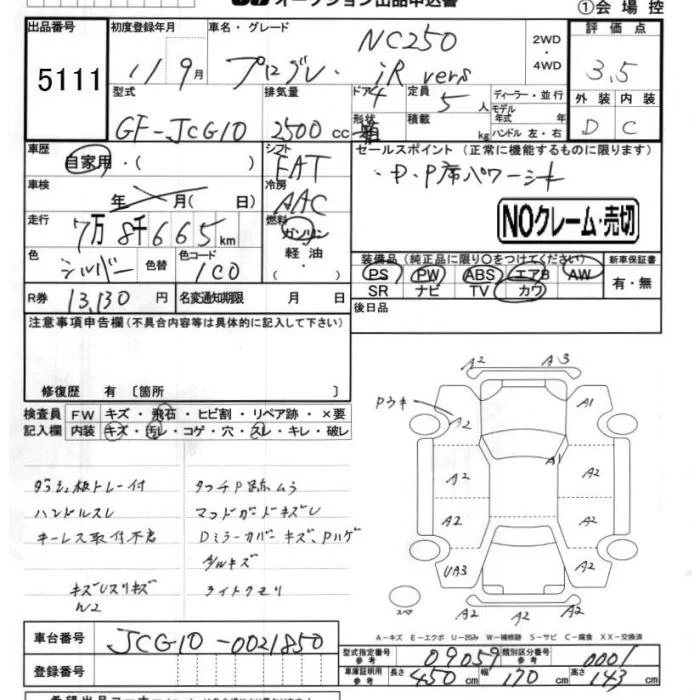 オークション出品申込書
①会場控
出品番号
5111
初度登録年月
11 9月
車名・グレード
NC250
プログレ・ iR vers
2WD
・
4WD
評価点
3.5
外装 内装
D C
型式
GF-JCG10
排気量
2500 cc
ドア 4
形状 箱
定員 5 人
積載 kg
ディーラー・並行
モデル年式 年
ハンドル 左・右
車歴
自家用・( )
シフト
FAT
セールスポイント (正常に機能するものに限ります)
・D.P席パワーシート
NOクレーム・売切
車検
年 月( 日)
冷房
AAC
走行
7万8千665km
燃料
ガソリン
軽油
・( )
色
シルバー
色替
色コード
1C0
装備品 (純正品に限り〇をつけてください)
PS PW ABS エアB AW
SR ナビ TV カワ
新車保証書
有・無
R券 13,130円
名変通知期限 月 日
後日品
注意事項申告欄 (不具合内容等は具体的に記入して下さい)
修復歴 有 〔箇所 〕
検査員 FW キズ・飛石・ヒビ割・リペア跡・×要
記入欄 内装 キズ・汚レ・コゲ・穴・スレ・キレ・破レ
ダッシュ板トレー付
ハンドルスレ
キーレス取付不良
キズUスリキズ
W2
タッチP跡ムラ
マッドガードキズU
Dミラーカバーキズ、Pハゲ
ライトクモリ
A2 A3
Pウキ
A2 A1
A1
A2 A2
A2 A2
UA3 A2
A2 A2
A2
スペア
A－キズ E－エクボ U－凹み W－補修跡 S－サビ C－腐食 XX－交換済
車台番号 JCG10-0021850
登録番号
型式指定番号 参考 09059
類別区分番号 参考 0001
車庫証明用 参考 長さ 450cm 幅 170cm 高さ 143cm
希望出品コーナー